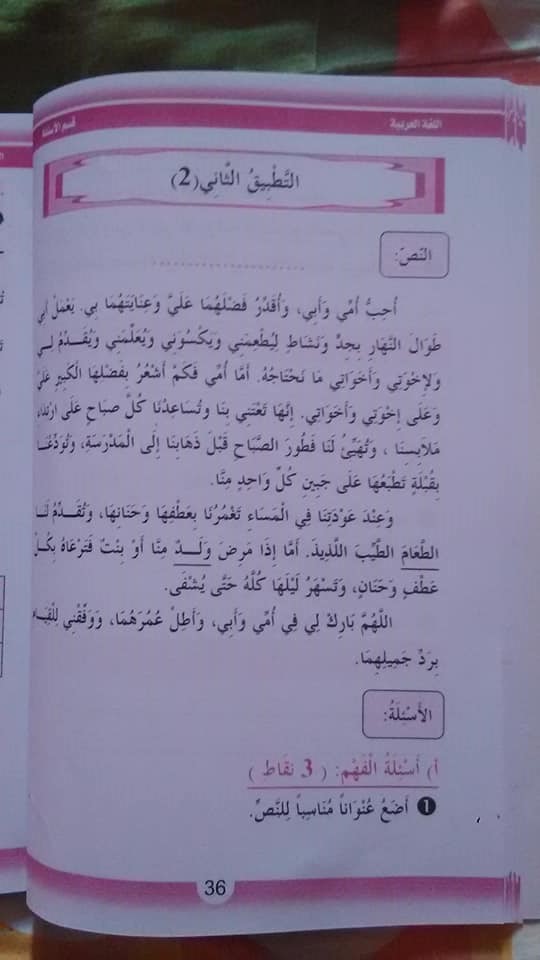 اللغة العربية
قسم الأسئلة
التَّطْبِيقُ الثَّانِي (2)
النَّصّ:
أُحِبُّ أُمِّي وَأَبِي، وَأُقَدِّرُ فَضْلَهُمَا عَلَيَّ وَعِنَايَتَهُمَا بِي. يَعْمَلُ أَبِي
طَوَالَ النَّهَارِ بِجِدٍّ وَنَشَاطٍ لِيُطْعِمَنِي وَيَكْسُوَنِي وَيُعَلِّمَنِي وَيُقَدِّمُ لِي
وَلِإِخْوَتِي وَأَخَوَاتِي مَا نَحْتَاجُهُ. أَمَّا أُمِّي فَكَمْ أَشْعُرُ بِفَضْلِهَا الْكَبِيرِ عَلَيَّ
وَعَلَى إِخْوَتِي وَأَخَوَاتِي. إِنَّهَا تَعْتَنِي بِنَا وَتُسَاعِدُنَا كُلَّ صَبَاحٍ عَلَى ارْتِدَاءِ
مَلَابِسِنَا، وَتُهَيِّئُ لَنَا فَطُورَ الصَّبَاحِ قَبْلَ ذَهَابِنَا إِلَى الْمَدْرَسَةِ، وَتُوَدِّعُنَا
بِقُبْلَةٍ تَطْبَعُهَا عَلَى جَبِينِ كُلِّ وَاحِدٍ مِنَّا.
وَعِنْدَ عَوْدَتِنَا فِي الْمَسَاءِ تَغْمُرُنَا بِعَطْفِهَا وَحَنَانِهَا، وَتُقَدِّمُ لَنَا
الطَّعَامَ الطَّيِّبَ اللَّذِيذَ. أَمَّا إِذَا مَرِضَ وَلَدٌ مِنَّا أَوْ بِنْتٌ فَتَرْعَاهُ بِكُلِّ
عَطْفٍ وَحَنَانٍ، وَتَسْهَرُ لَيْلَهَا كُلَّهُ حَتَّى يُشْفَى.
اللَّهُمَّ بَارِكْ لِي فِي أُمِّي وَأَبِي، وَأَطِلْ عُمُرَهُمَا، وَوَفِّقْنِي
بِرَدِّ جَمِيلِهِمَا.
الأَسْئِلَةُ:
أ) أَسْئِلَةُ الْفَهْمِ: (3 نقَاط)
1 أَضَعُ عُنْوَاناً مُنَاسِباً لِلنَّصِّ.
36